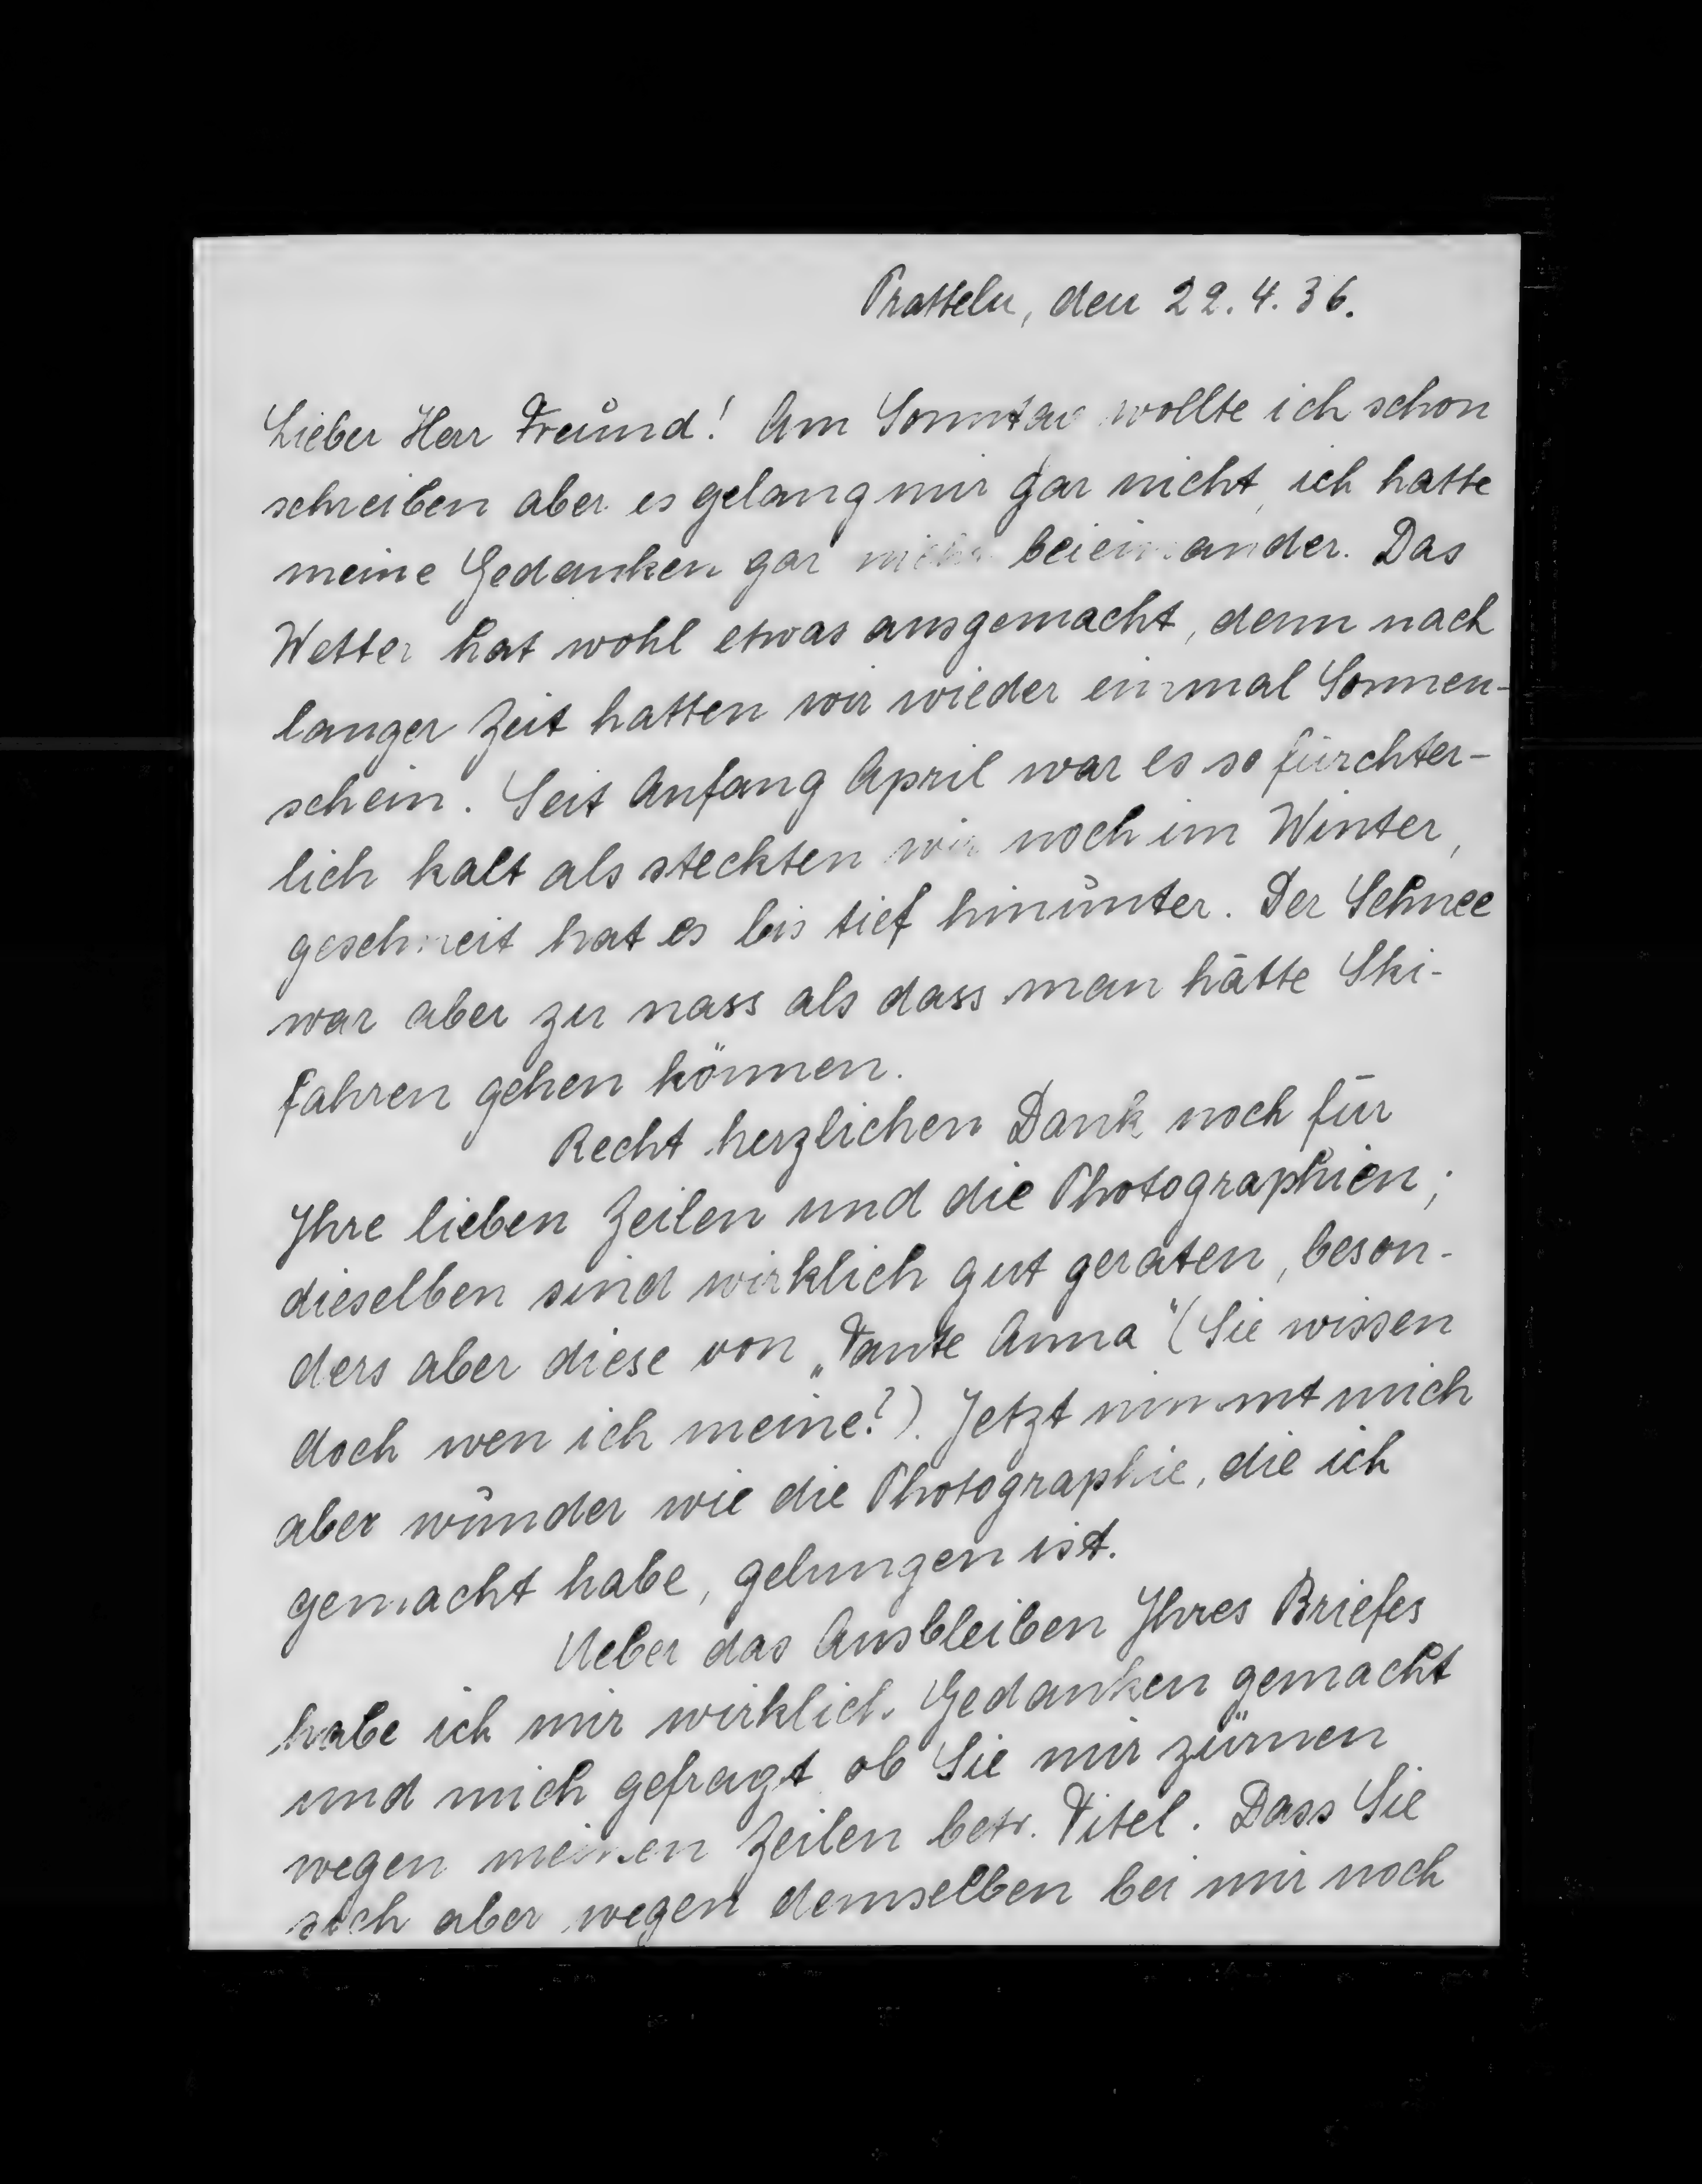 Pratteln, den 22.4.36.
Lieber Herr Freund! Am Sonntag wollte ich schon
schreiben aber es gelang mir gar nicht, ich hatte
meine Gedanken gar nicht beieinander. Das
Wetter hat wohl etwas ausgemacht, denn nach
langer Zeit hatten wir wieder einmal Sonnen-
schein. Seit Anfang April war es so fürchter-
lich kalt als steckten wir noch im Winter,
geschneit hat es bis tief hinunter. Der Schnee
war aber zu nass als dass man hätte Ski-
fahren gehen können.
Recht herzlichen Dank noch für
Ihre lieben Zeilen und die Photographien;
dieselben sind wirklich gut geraten, beson-
ders aber diese von „Tante Anna" (Sie wissen
doch wen ich meine?). Jetzt nimmt mich
aber wunder wie die Photographie, die ich
gemacht habe, gelungen ist.
Ueber das Ausbleiben Ihres Briefes
habe ich mir wirklich Gedanken gemacht
und mich gefragt ob Sie mir zürnen
wegen meinen Zeilen betr. Titel. Dass Sie
sich aber wegen demselben bei mir noch